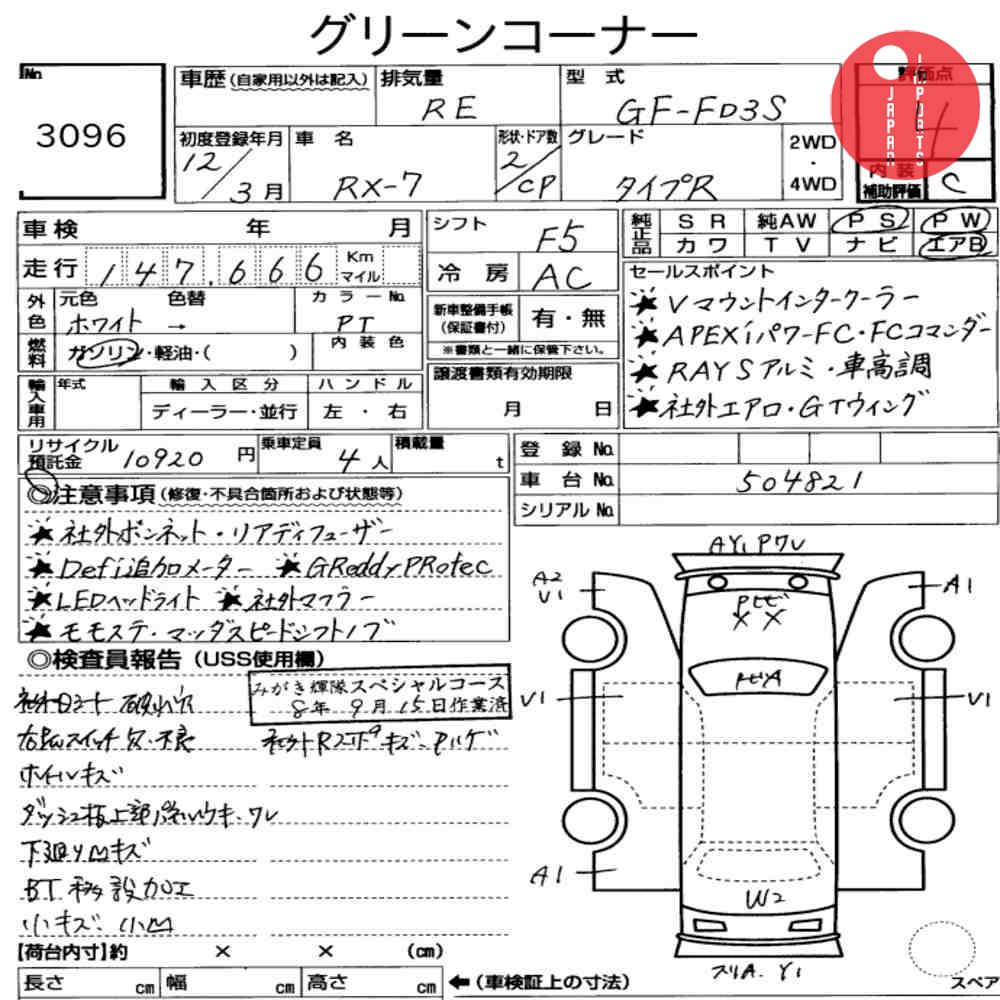 グリーンコーナー
No.
3096
車歴(自家用以外は記入)
排気量
RE
型 式
GF-FD3S
評価点
4
JAPAN
IMPORTS
初度登録年月
12/3月
車 名
RX-7
形状・ドア数
2/CP
グレード
タイプR
2WD
・
4WD
内 装
補助評価
C
車検 年 月
シフト
F5
純正品
SR 純AW PS PW
カワ TV ナビ エアB
走行 147,666 Km
マイル
冷 房
AC
セールスポイント
★Vマウントインタークーラー
★APEXiパワーFC・FCコマンダー
★RAYSアルミ・車高調
★社外エアロ・GTウィング
外色
元色 色替
ホワイト →
カラーNo.
PT
新車整備手帳
(保証書付)
有・無
※書類と一緒に保管下さい。
燃料
ガソリン・軽油・( )
内装色
輸入車用
年式
輸入区分
ディーラー・並行
ハンドル
左・右
譲渡書類有効期限
月 日
リサイクル
預託金
10920円
乗車定員
4人
積載量
t
登 録 No.
車 台 No.
504821
シリアル No.
◎注意事項(修復・不具合箇所および状態等)
★社外ボンネット・リアディフューザー
★Defi追加メーター ★GReddyPRotec
★LEDヘッドライト ★社外マフラー
★モモステ・マツダスピードシフトノブ
◎検査員報告(USS使用欄)
みがき輝隊スペシャルコース
8年9月15日作業済
ホイルキズ
小キズ 小凹
AY1
A2
V1
A1
V1
V1
A1
W2
Y1
【荷台内寸】約 × × (cm)
長さ cm 幅 cm 高さ cm
←(車検証上の寸法)
スペア